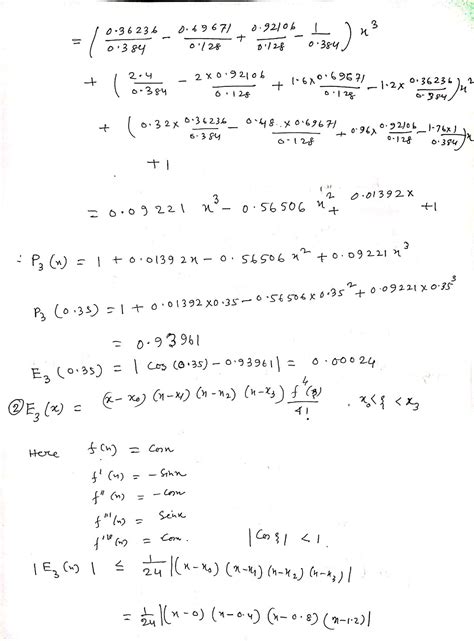 = ( 0.36236/0.384 - 0.69671/0.128 + 0.92106/0.128 - 1/0.384 ) x³
+ ( 2.4/0.384 - 2×0.92106/0.128 + 1.6×0.69671/0.128 - 1.2×0.36236/0.384 ) x²
+ ( 0.32×0.36236/0.384 - 0.48×0.69671/0.128 + 0.96×0.92106/0.128 - 1.76×1/0.384 ) x
+1
= 0.09221 x³ - 0.56506 x² + 0.01392x +1
∴ P₃(x) = 1 + 0.01392x - 0.56506 x² + 0.09221 x³
P₃(0.35) = 1 + 0.01392×0.35 - 0.56506×0.35² + 0.09221×0.35³
= 0.93961
E₃(0.35) = | cos(0.35) - 0.93961 | = 0.00024
② E₃(x) = (x-x₀)(x-x₁)(x-x₂)(x-x₃) f⁴(ξ)/4! , x₀<ξ<x₃
Here f(x) = cosx
f'(x) = -sinx
f''(x) = -cosx
f'''(x) = sinx
f''''(x) = cosx. |cosξ| < 1.
|E₃(x)| ≤ 1/24 |(x-x₀)(x-x₁)(x-x₂)(x-x₃)|
= 1/24 |(x-0)(x-0.4)(x-0.8)(x-1.2)|